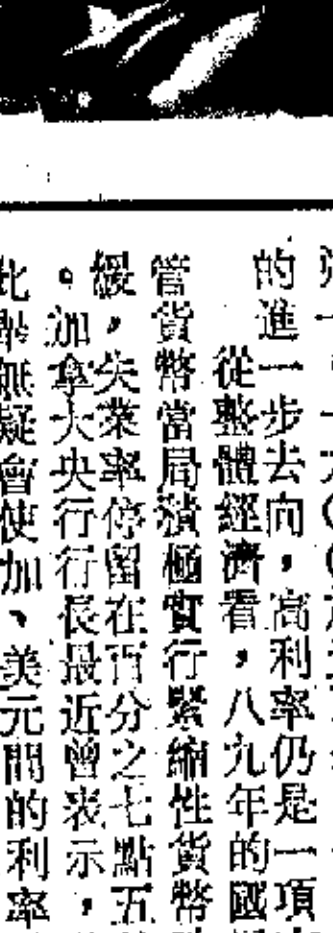 的進一步去向，高利率仍是一項
從整體經濟看，八九年的國
管貨幣當局積極實行緊縮性貨幣
緩，失業率停留在百分之七點五
。加拿大央行行長最近曾表示，
此舉無疑會使加、美元間的利率